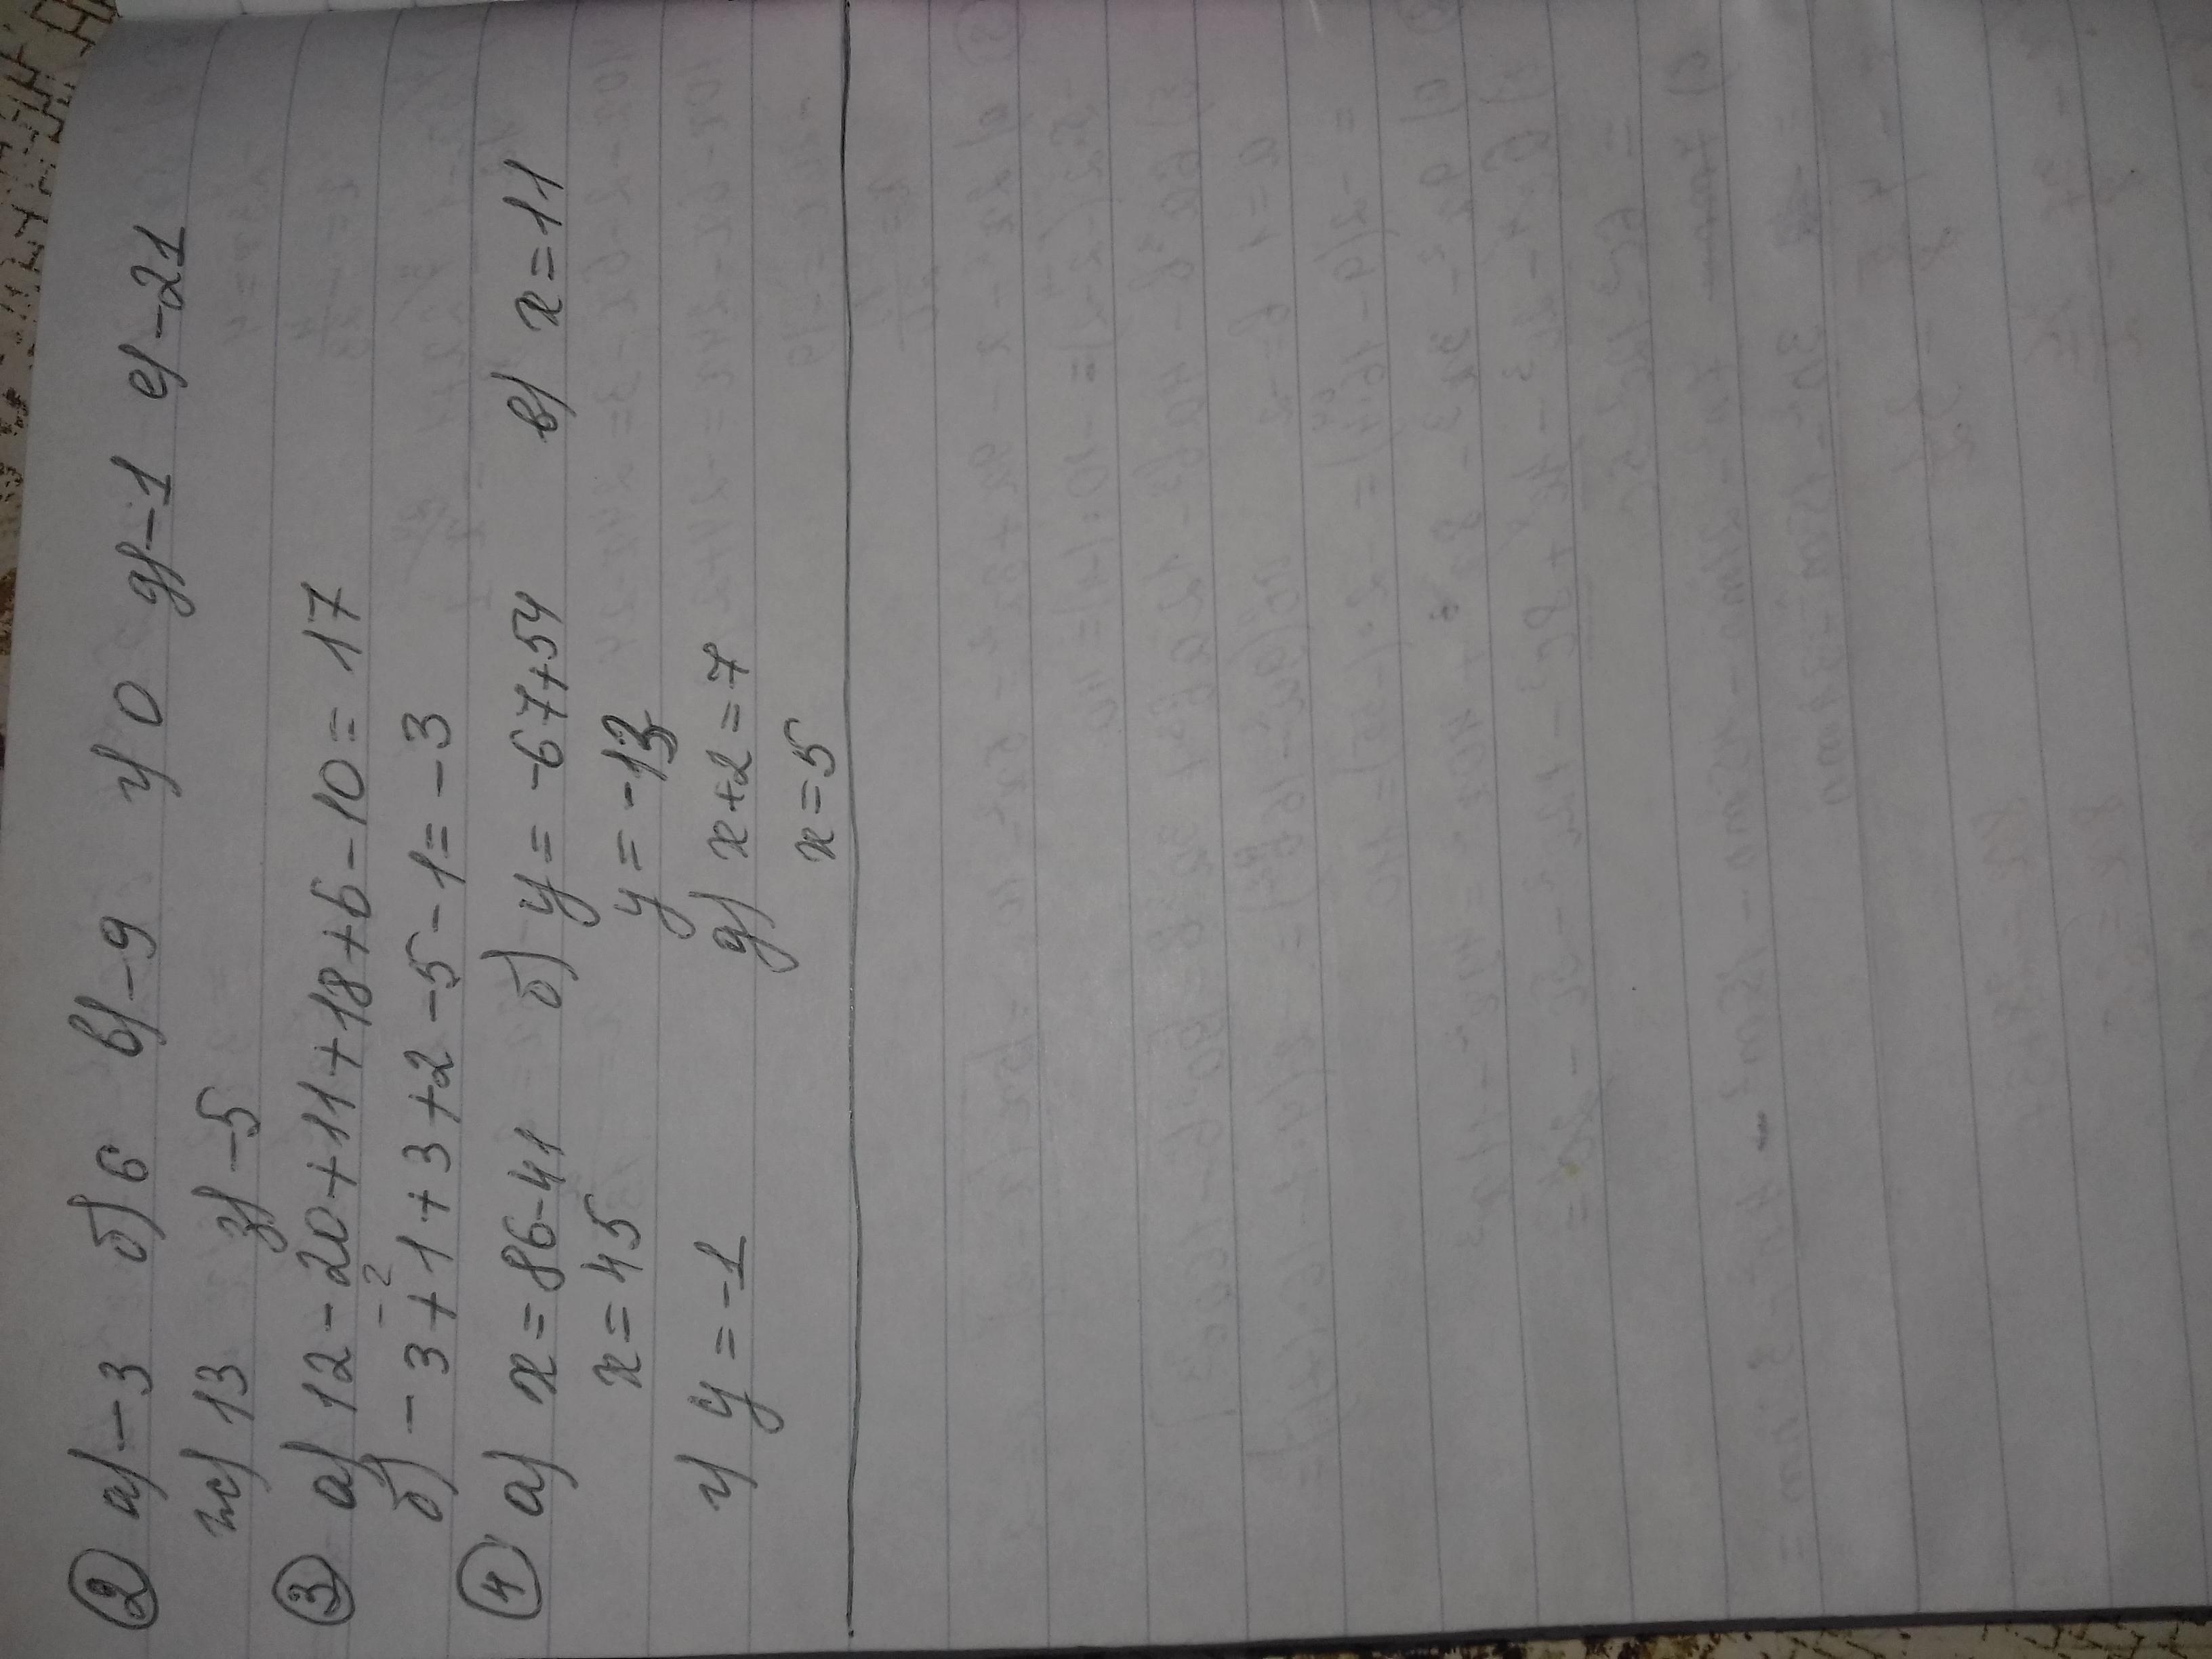 ② а) -3 б) 6 в) -9 г) 0 д) -1 е) -21
ж) 13 з) -5
③ а) 12 - 20 + 11 + 18 + 6 - 10 = 17
-2
б) -3 + 1 + 3 + 2 - 5 - 1 = -3
④ а) x = 86 - 41 б) y = -67 + 54 в) x = 11
x = 45 y = -13
г) y = -1 д) x + 2 = 7
x = 5